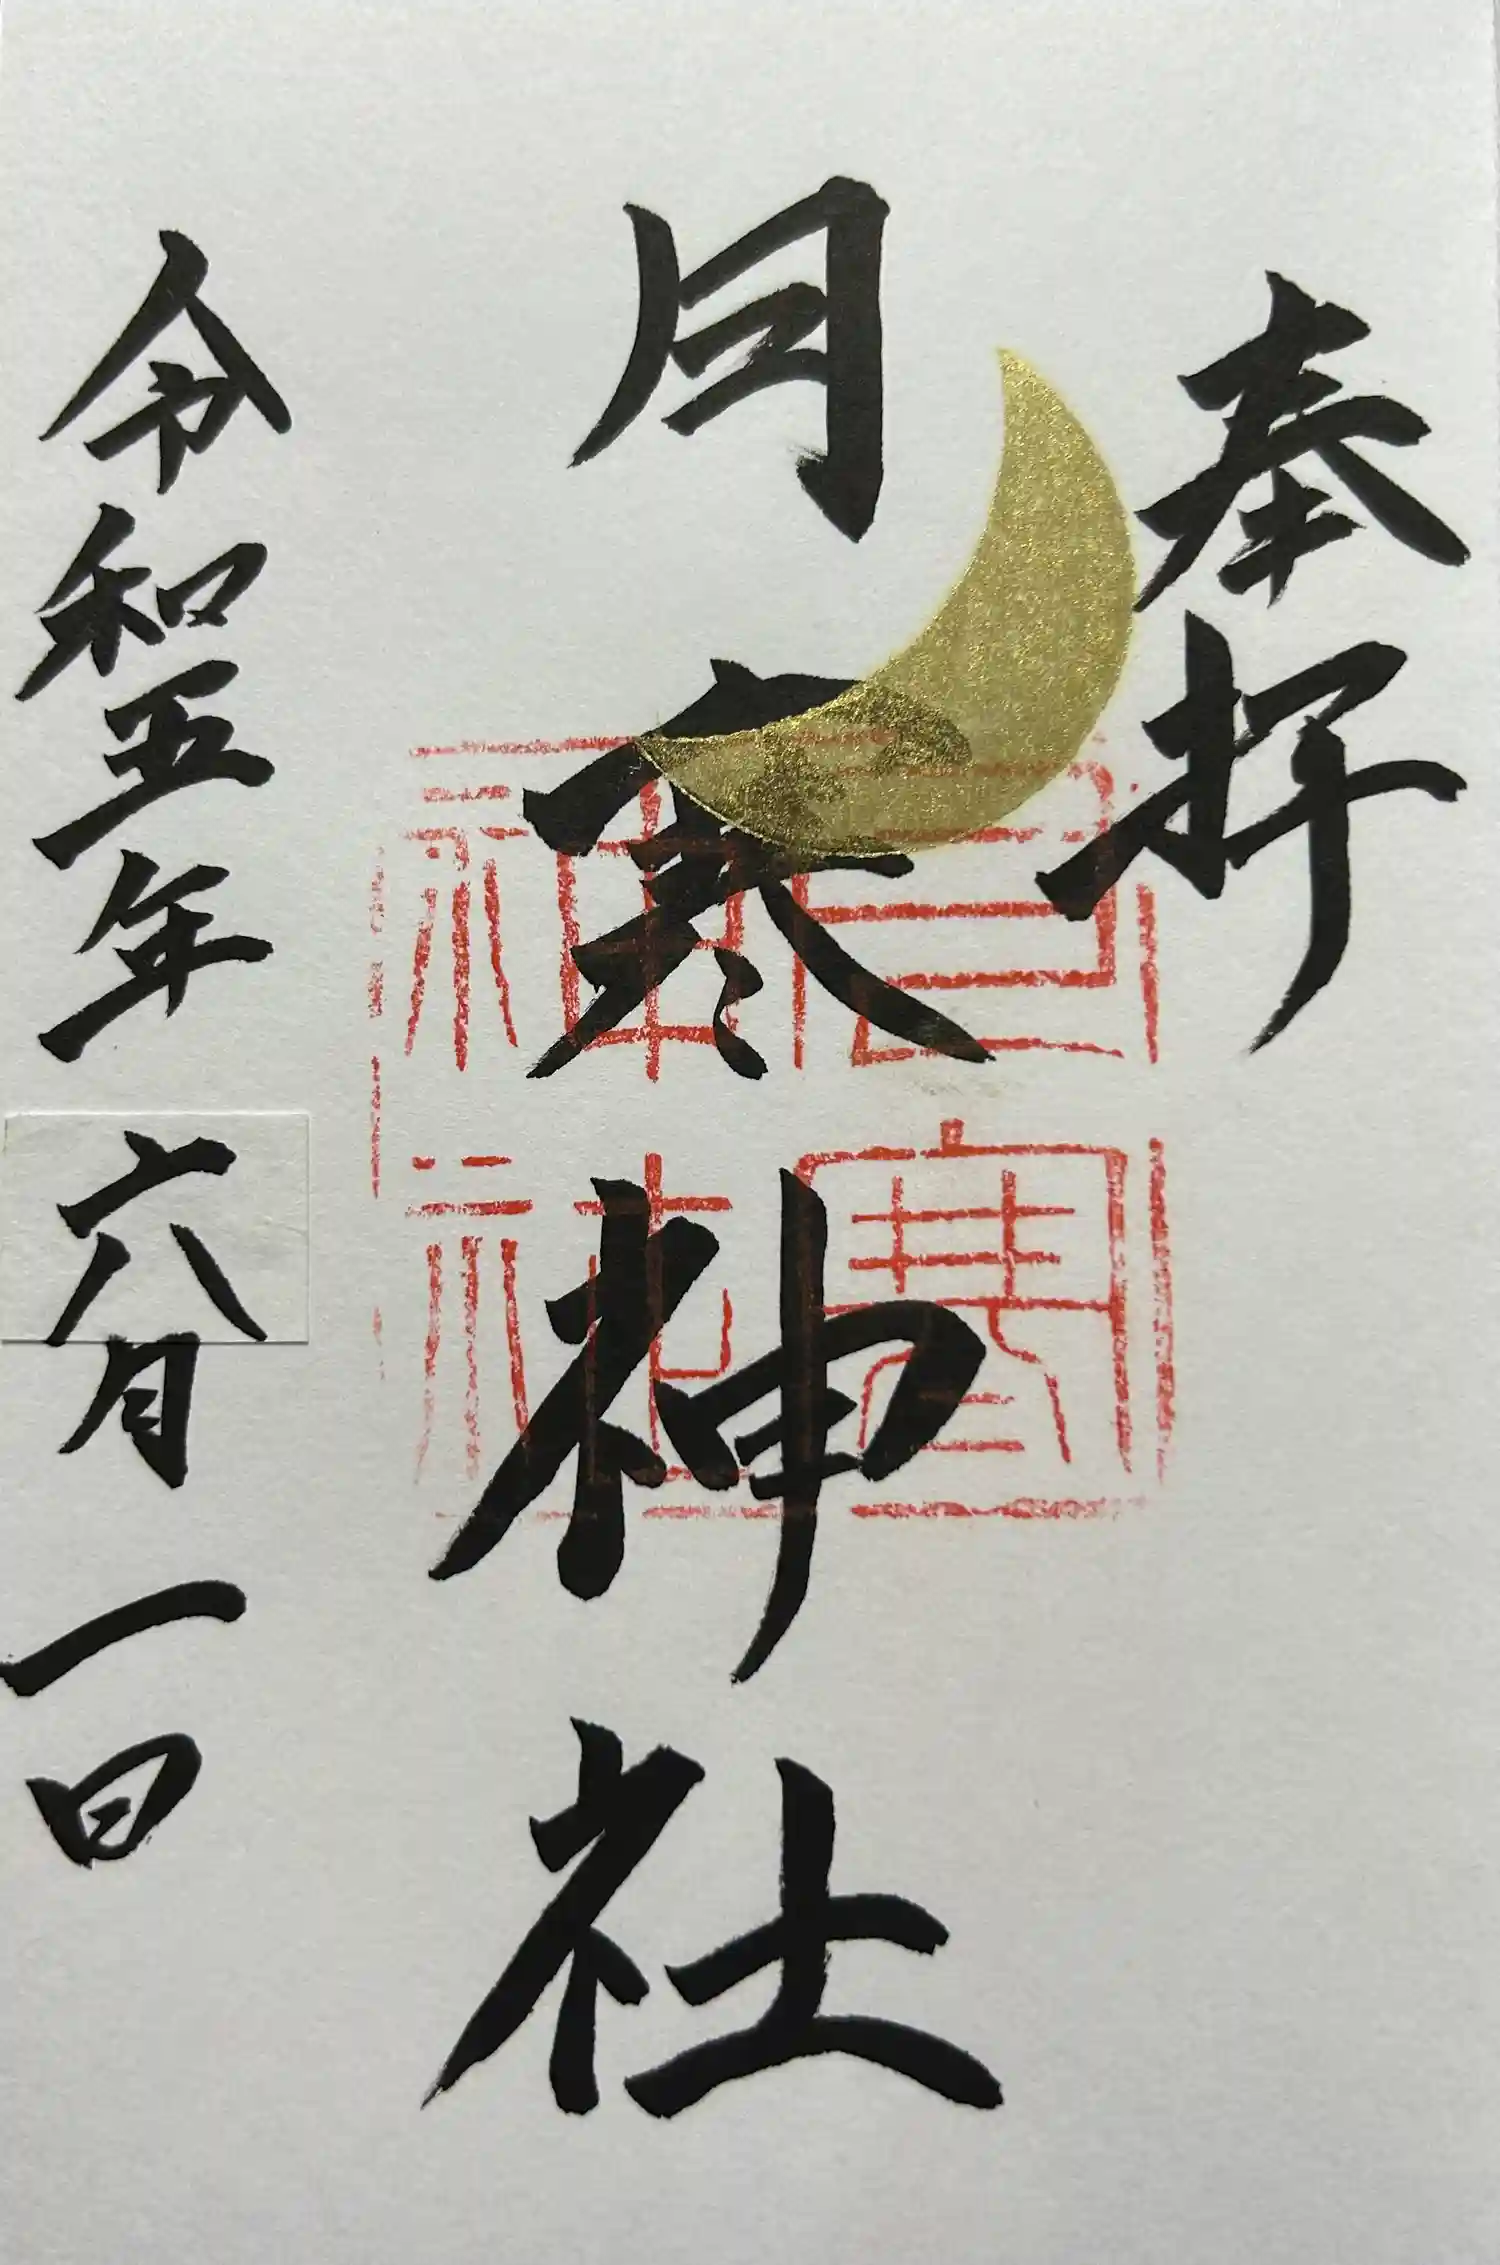 奉拝
月寒神社
月寒
神社
令和五年六月一日